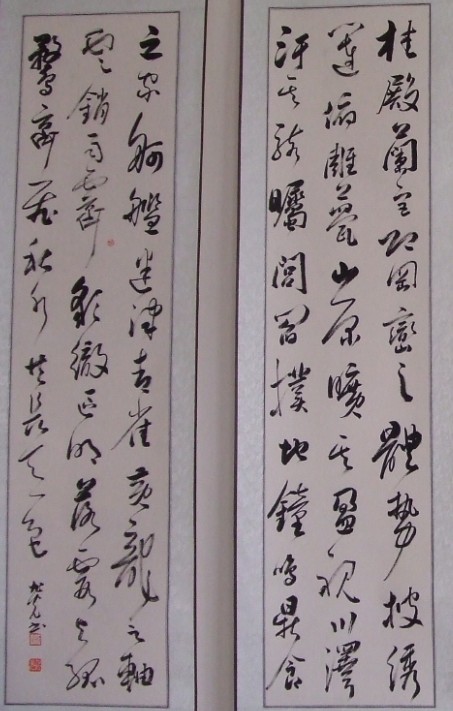 桂殿蘭宮即岡巒之體勢披繡
闥俯雕甍山原曠其盈視川澤
紆其駭矚閭閻撲地鐘鳴鼎食
之家舸艦迷津青雀黃龍之軸
雲銷雨霽彩徹區明落霞與孤
鶩齊飛秋水共長天一色